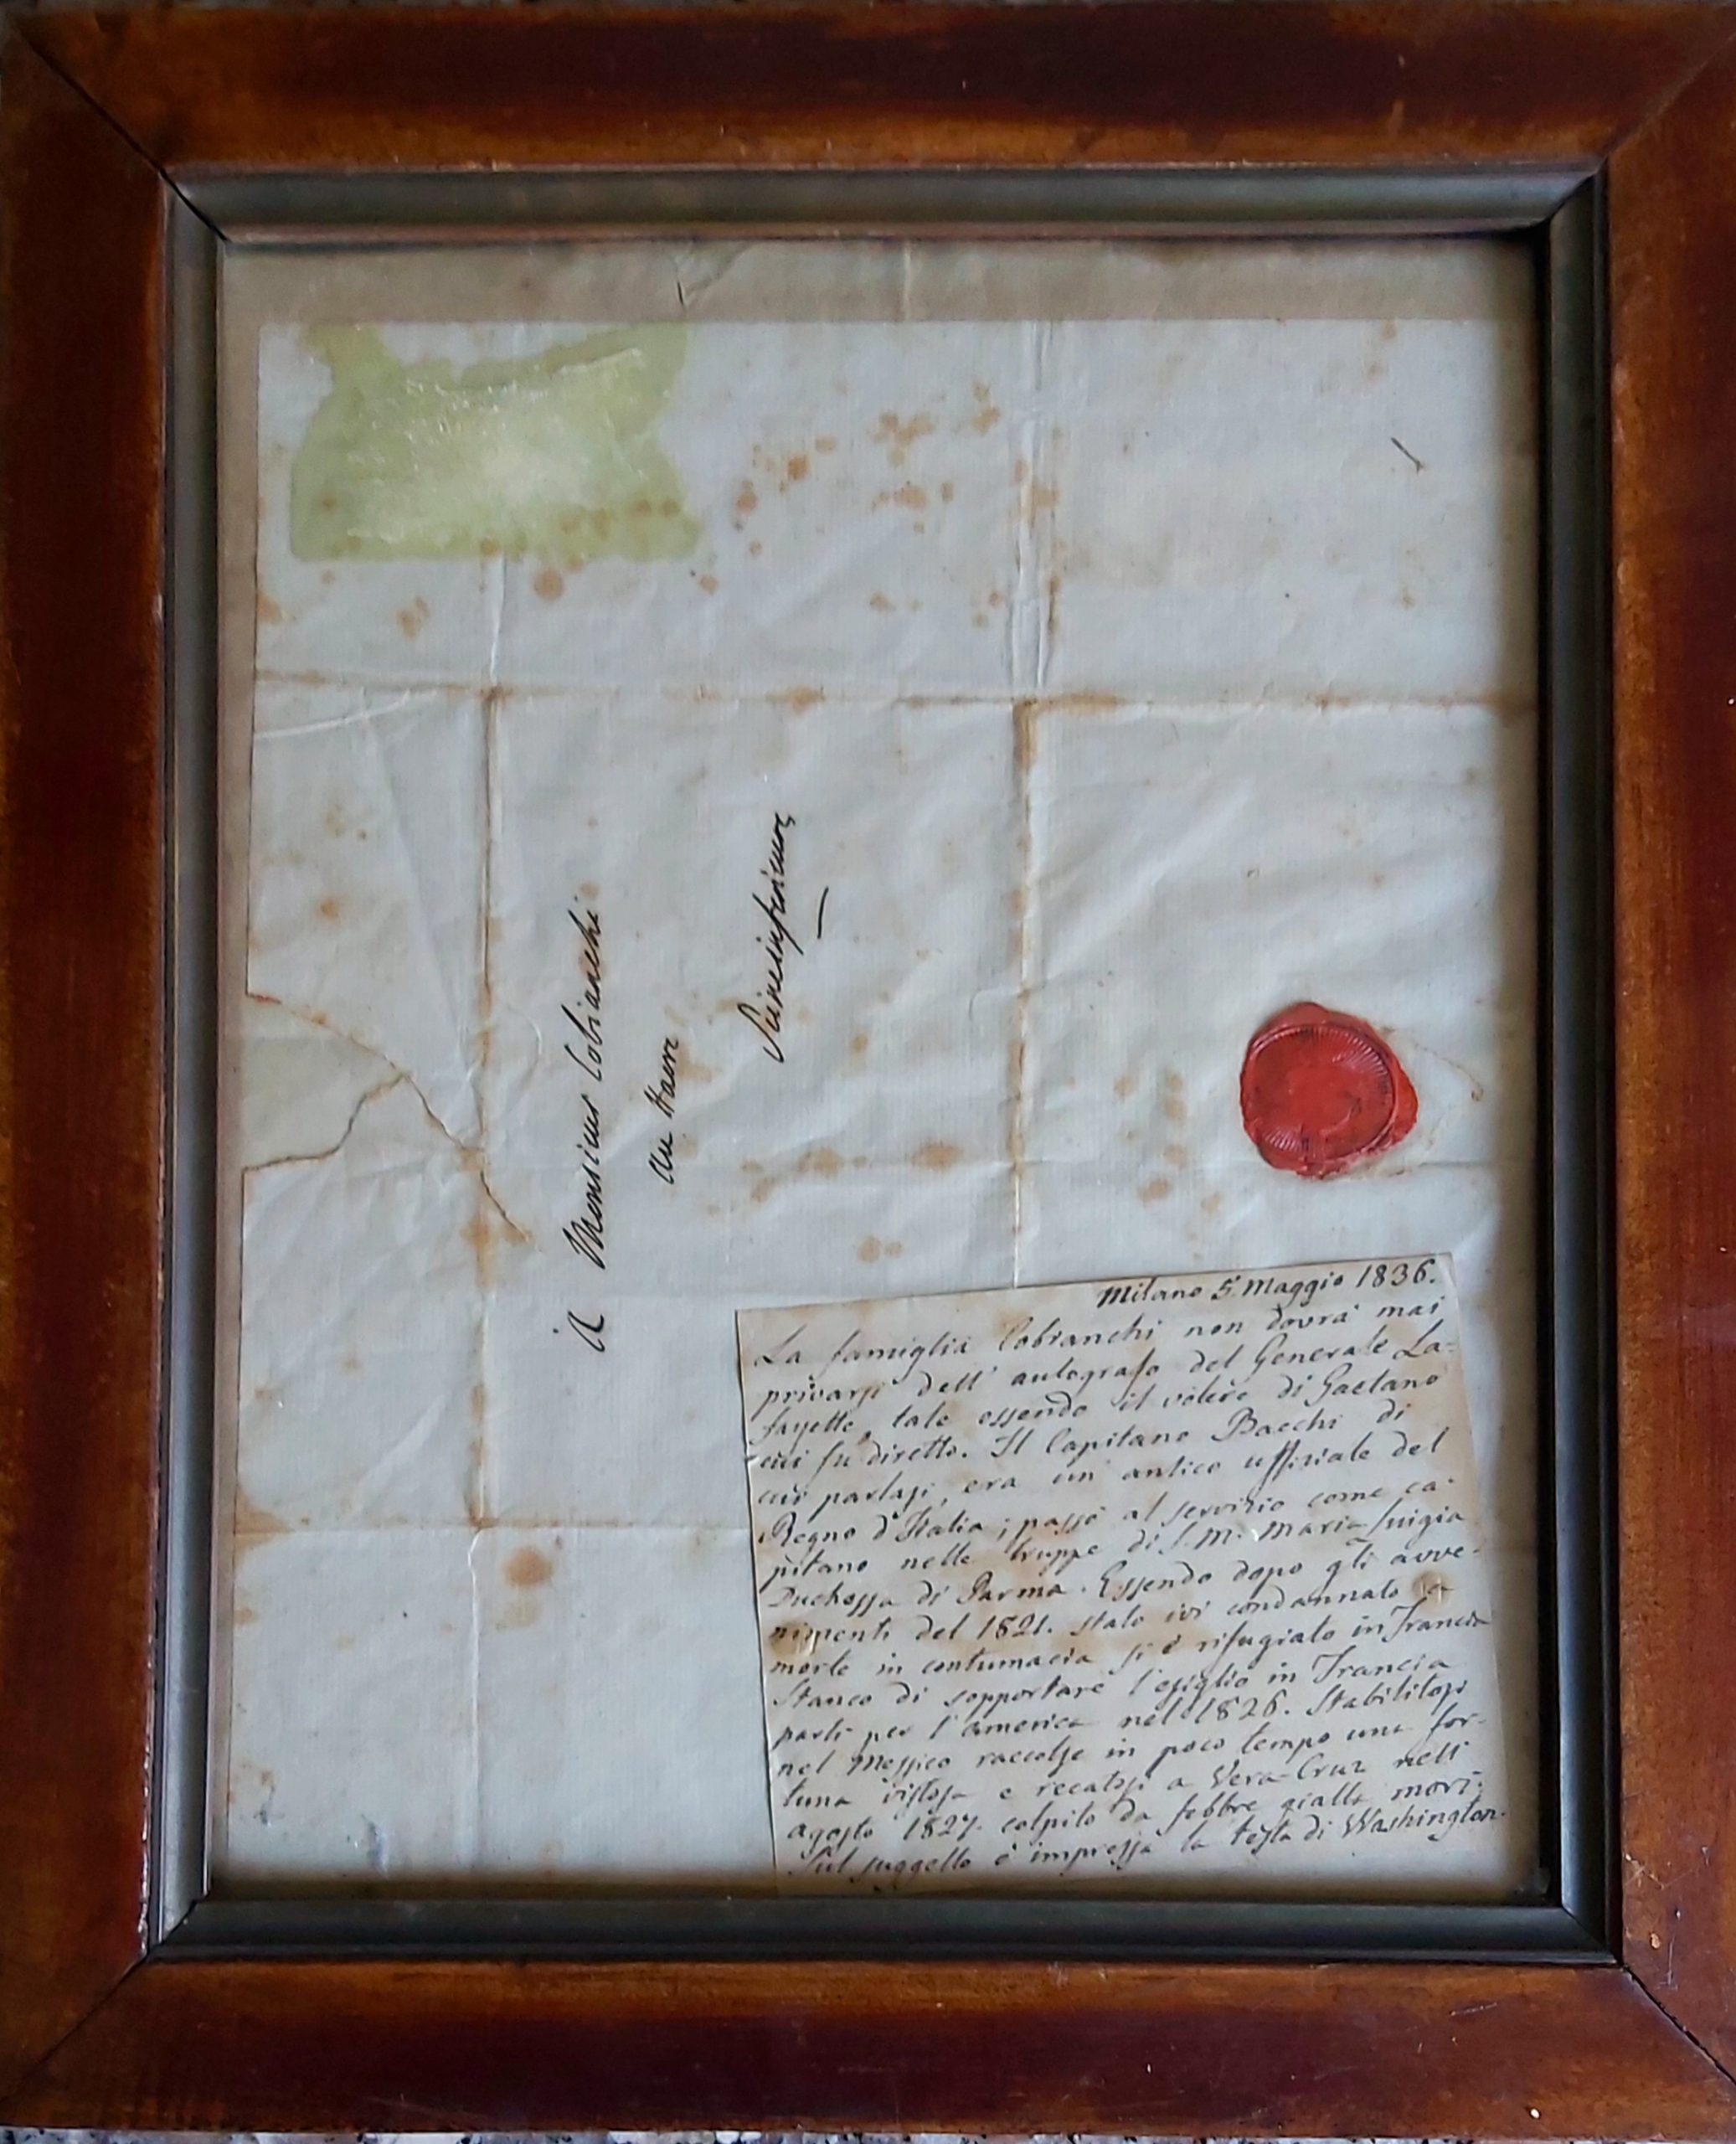 A Monsieur Cobianchi
au Havre
Seineinferieure
Milano 5. Maggio 1836.
La famiglia Cobianchi non dovrà mai
privarsi dell' autografo del Generale La-
fayette, tale essendo il volere di Gaetano
cui fu diretto. Il Capitano Bacchi di
cui parlasi, era un antico uffiziale del
Regno d'Italia; passò al servizio come ca-
pitano nelle truppe di S. M. Maria Luigia
Duchessa di Parma. Essendo dopo gli avve-
nimenti del 1821. stato ivi condannato a
morte in contumacia si è rifugiato in Francia
Stanco di sopportare l'esiglio in Francia
partì per l'america nel 1826. Stabilitosi
nel Messico raccolse in poco tempo una for-
tuna vistosa e recatosi a Vera-Cruz nell'
agosto 1827. colpito da febbre gialla morì.
Sul suggello è impressa la testa di Washington.